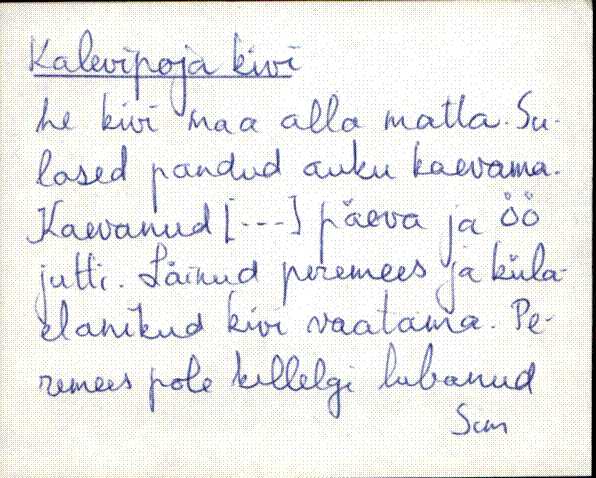 Kalevipoja kivi
he kivi maa alla matta. Su-
lased pandud auku kaevama.
Kaevanud [---] päeva ja öö
jutti. Läinud peremees ja küla-
elanikud kivi vaatama. Pe-
remees pole kellelgi lubanud